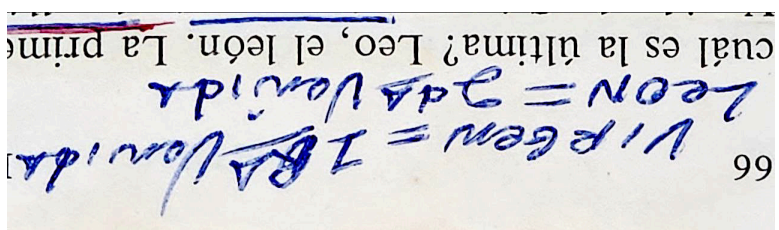 99
VIRGEN = 1RA Venida
LEON = 2da Venida
cuál es la última? Leo, el león. La prime